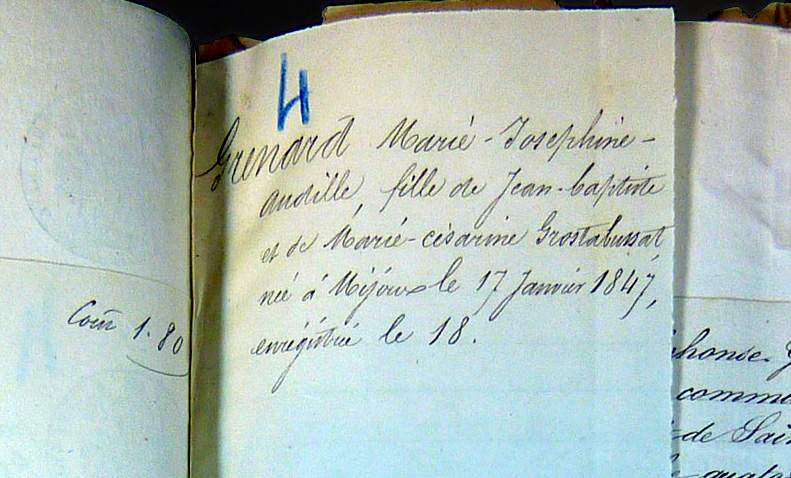 Coût 1.80
4
Grenard Marie-Josephine-
Audille, fille de Jean-baptiste
et de Marie-césarine Grostabussat,
née à Mijoux le 17 Janvier 1847,
enrégistrée le 18.
phonse
comme
de Sai
quato